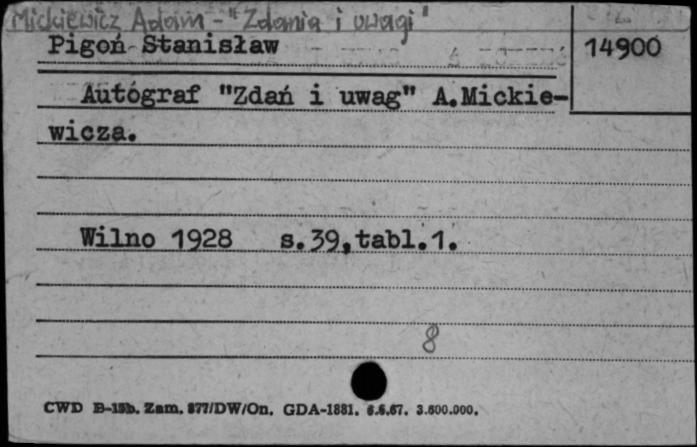 Mickiewicz Adam - "Zdania i uwagi"
Pigoń Stanisław
14900
Autograf "Zdań i uwag" A.Mickie-
wicza.
Wilno 1928 s.39,tabl.1.
8
CWD B-15b. Zam. 877/DW/On. GDA-1881. 6.6.67. 3.600.000.